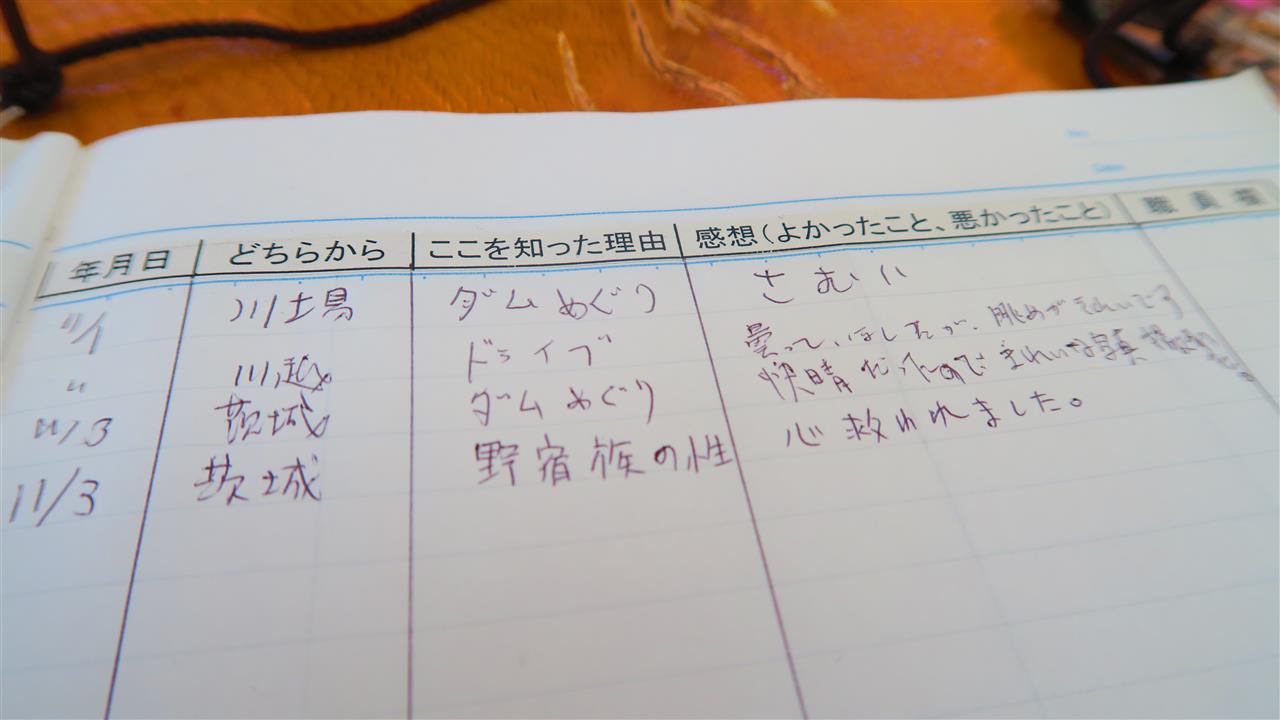 年月日 どちらから ここを知った理由 感想(よかったこと、悪かったこと) 職員
11/1 ダムめぐり さむい
〃 川越 ドライブ 曇っていましたが、眺めがきれいでした
11/3 茨城 ダムめぐり 快晴だったのできれいな写真
11/3 茨城 野宿族の性 心救われました。